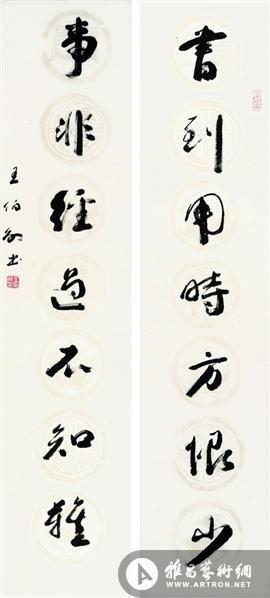 書到用時方恨少
事非經過不知難
王伯敏書
雅昌藝術網
www.artron.net